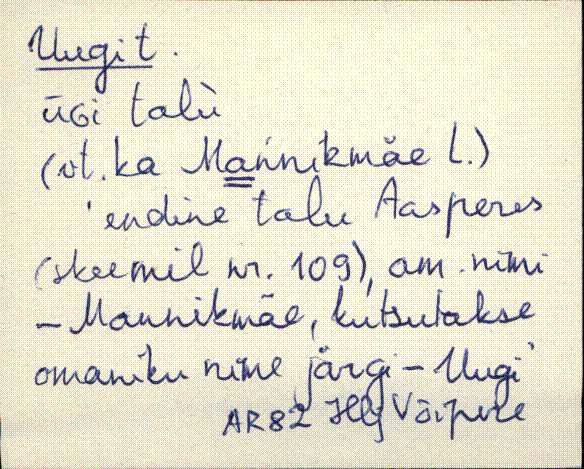 Uugi t.
ūGi talù
(vt. ka Mańnikmäe l.)
'endine talu Aasperes
(skeemil nr. 109), am. nimi
– Mannikmäe, kutsutakse
omaniku nime järgi – Uugi'
AR82 Võipere